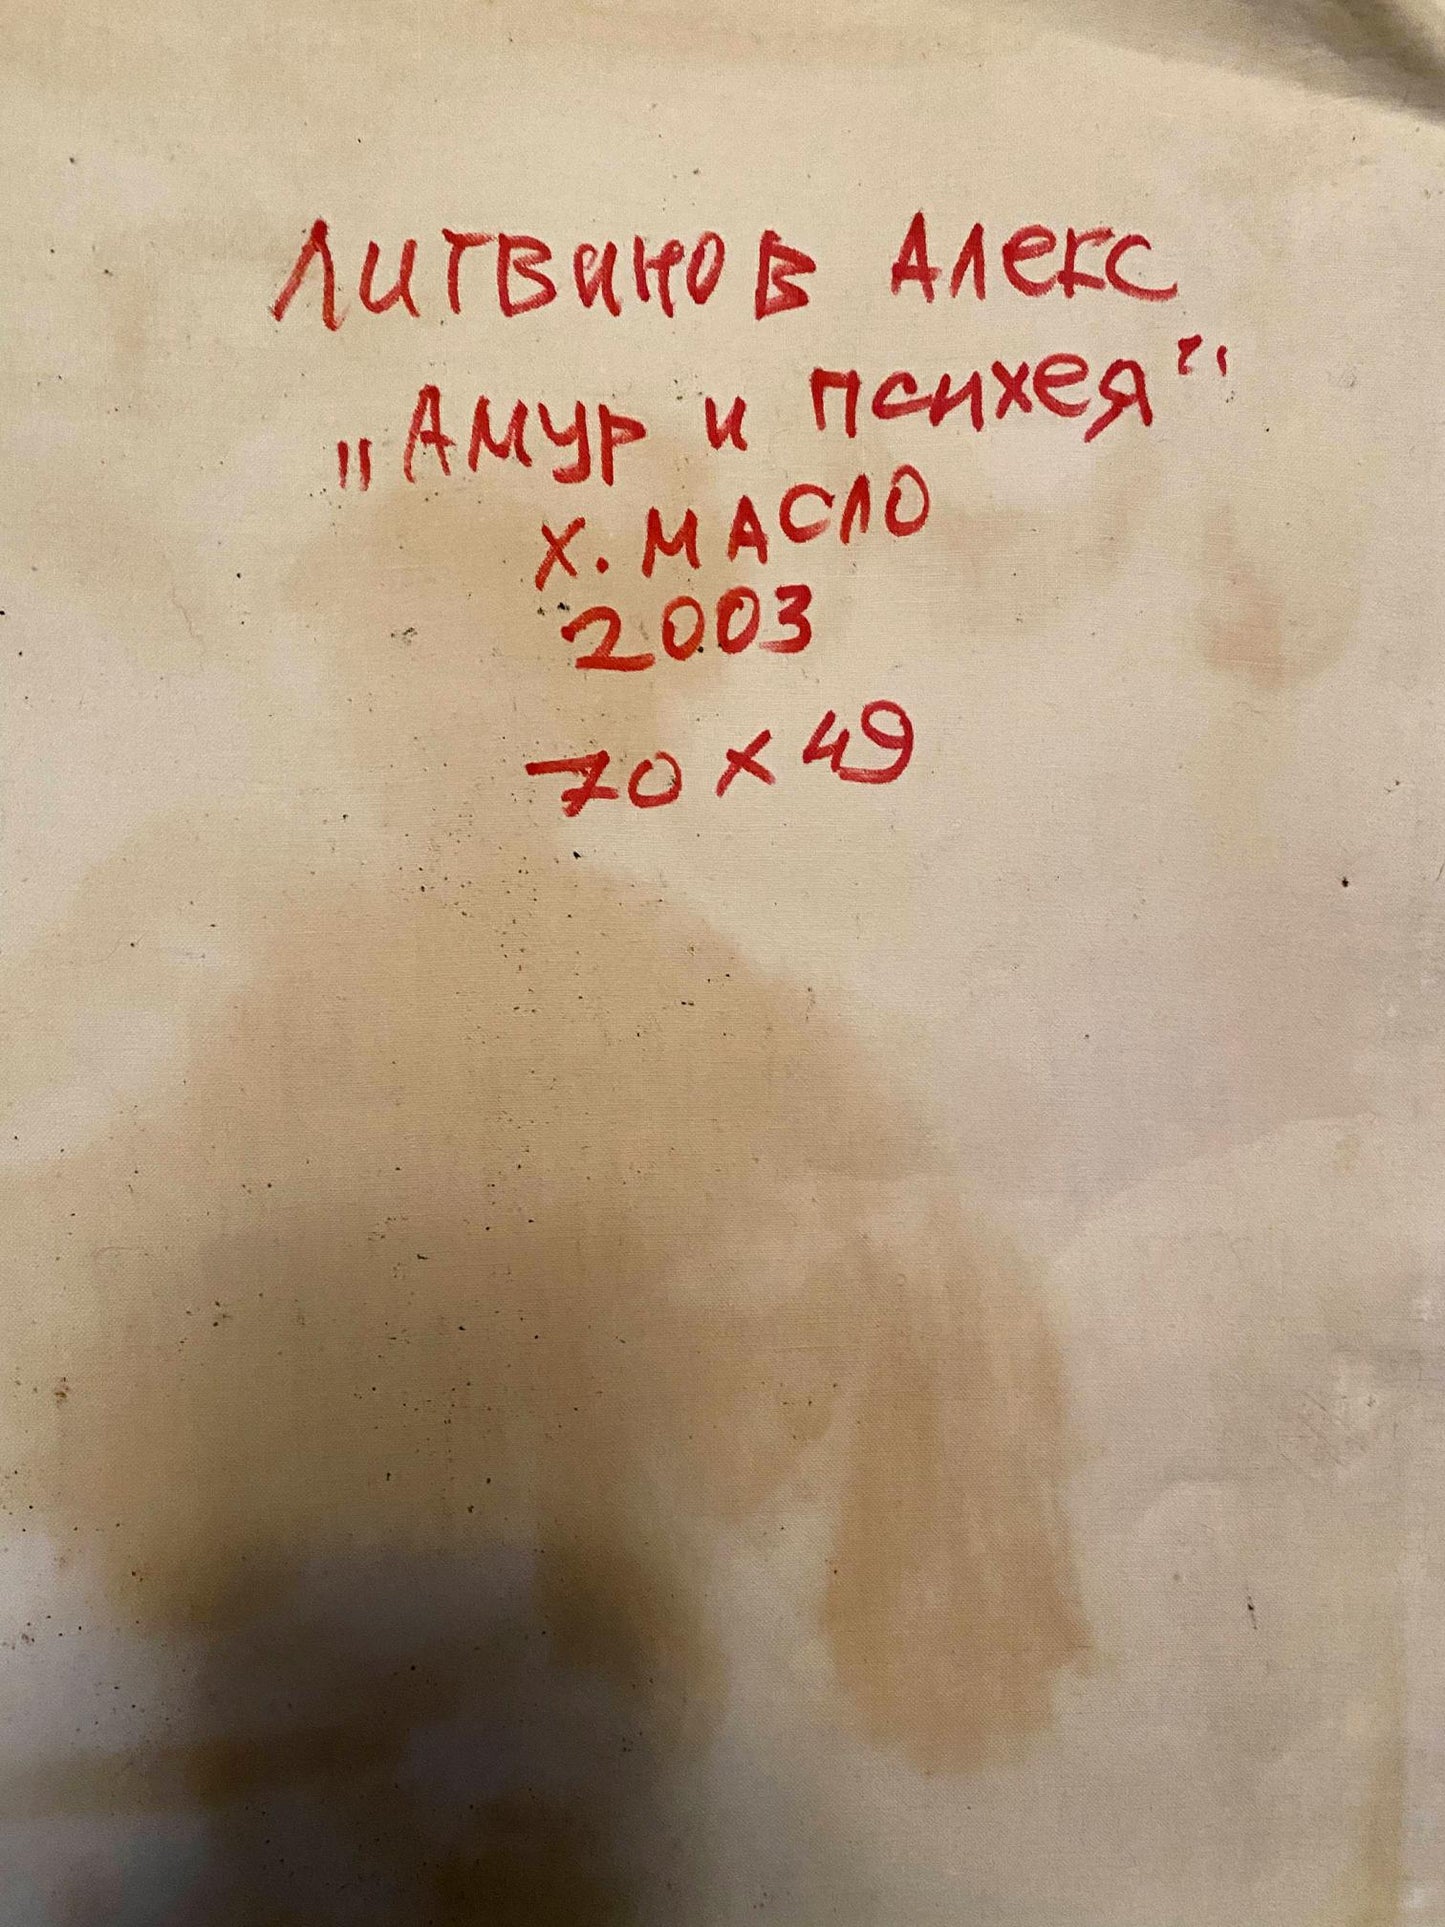 Литвинов Алекс
"Амур и психея"
х. масло
2003
70 х 49